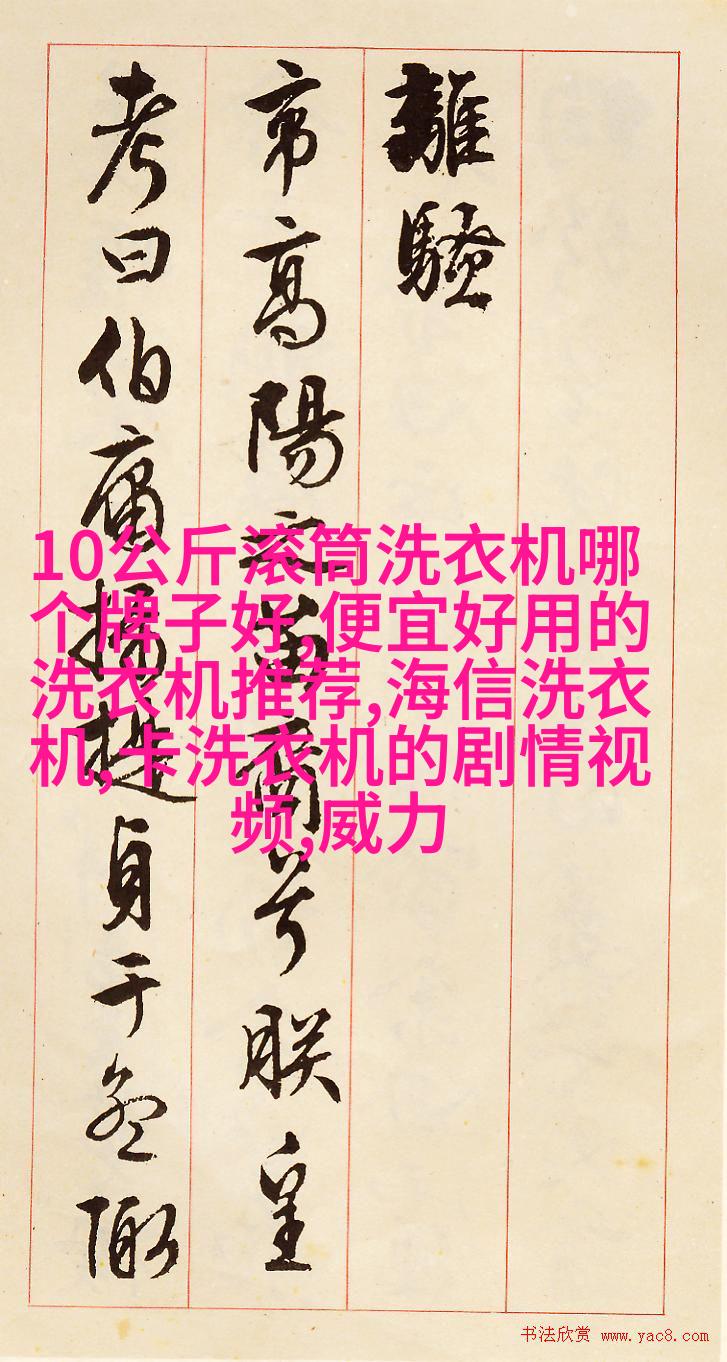 離騷
帝高陽之苗裔兮朕皇
考曰伯庸攝提貞于孟陬
10公斤滚筒洗衣机哪
个牌子好,便宜好用的
洗衣机推荐,海信洗衣
机,卡洗衣机的剧情视
频,威力
书法欣赏 www.yac8.com